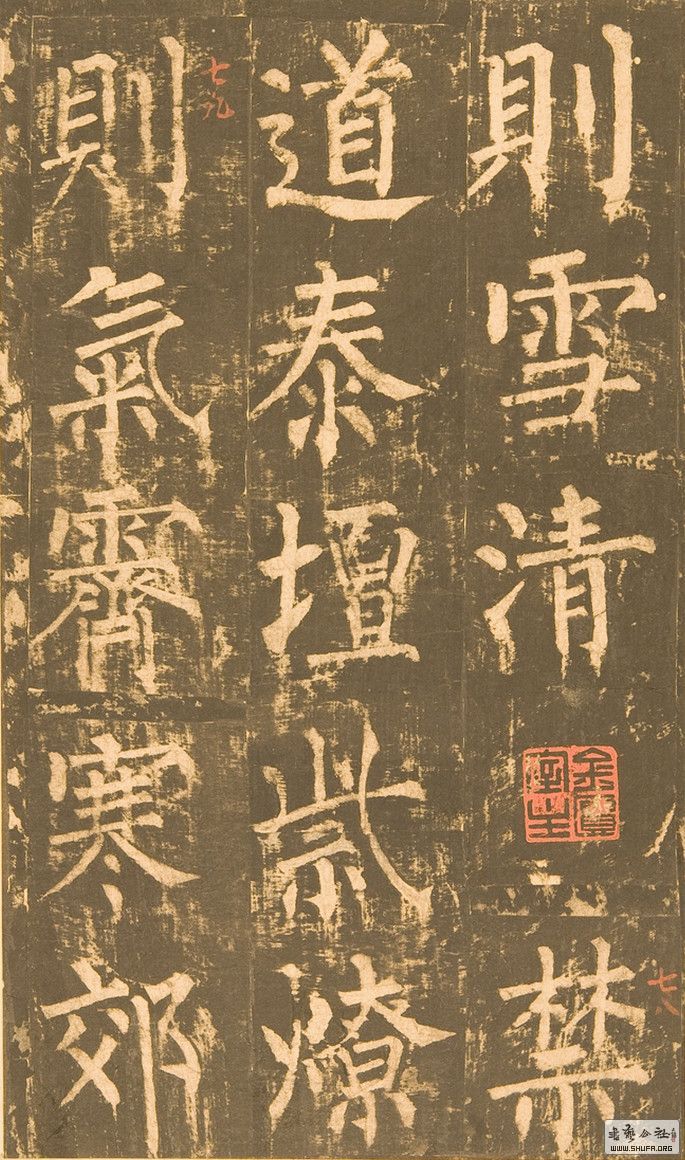 則雪清禁
道泰壇祡燎
則氣霽寒郊
七八
七九
書藝公社
WWW.SHUFA.ORG